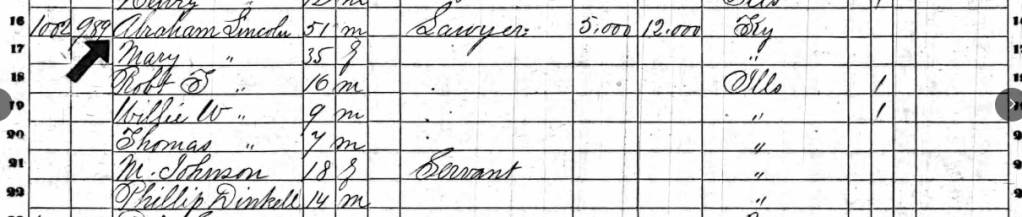 Henry " 12 m Ills 1
16 1002 989 Abraham Lincoln 51 m Lawyer 5,000 12,000 Ky
17 Mary " 35 f "
18 Robt T " 16 m Ills 1
19 Willie W " 9 m " 1
20 Thomas " 7 m "
21 M. Johnson 18 f Servant "
22 Phillip Dinkell 14 m "